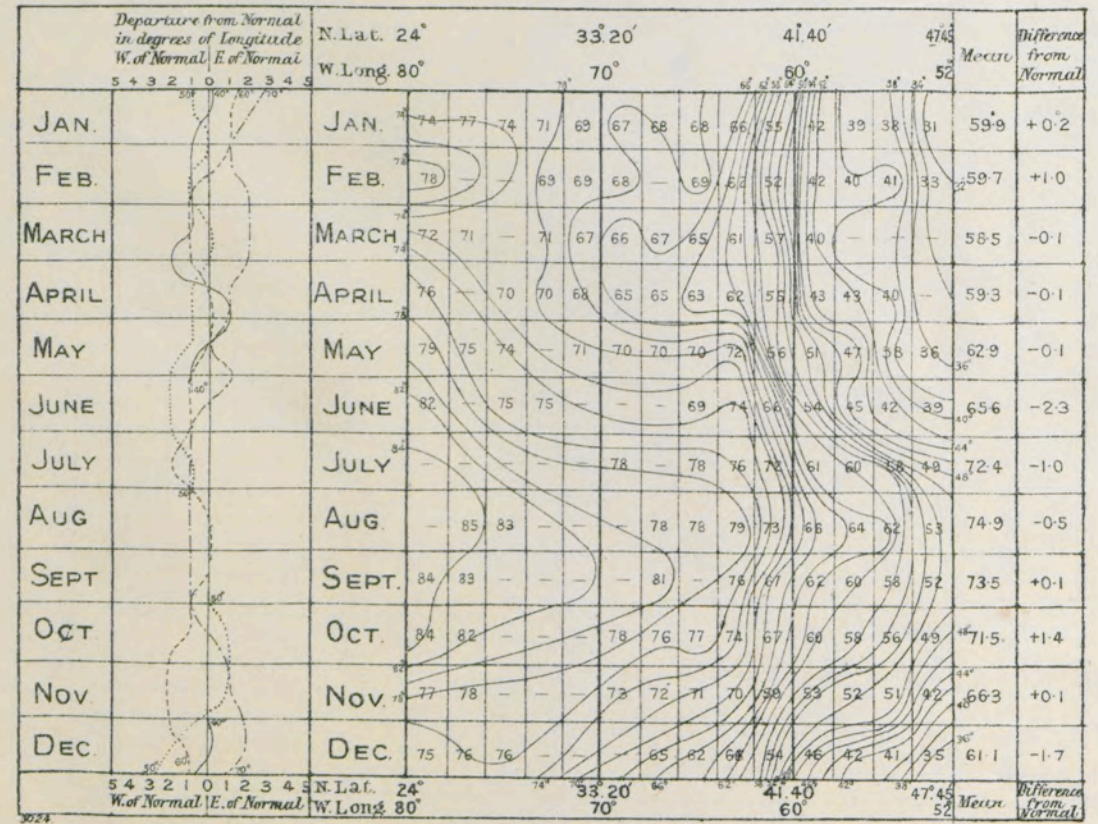 Departure from Normal
in degrees of Longitude
W. of Normal E. of Normal
5 4 3 2 1 0 1 2 3 4 5
50° 40° 60° 70°
N. Lat. 24° 33.20′ 41.40′ 47.45
W. Long. 80° 70° 60° 52
Mean
Difference
from
Normal
JAN. JAN. 74 77 74 71 69 67 68 68 66 55 42 39 38 31 59.9 +0.2
FEB. FEB. 78 – – 69 69 68 – 69 62 52 42 40 41 33 59.7 +1.0
MARCH MARCH 72 71 – 71 67 66 67 65 61 57 40 – – – 58.5 -0.1
APRIL APRIL 76 – 70 70 68 65 65 63 62 55 43 43 40 – 59.3 -0.1
MAY MAY 79 75 74 – 71 70 70 70 72 56 51 47 38 36 62.9 -0.1
JUNE JUNE 82 – 75 75 – – – 69 74 66 54 45 42 39 65.6 -2.3
JULY JULY – – – – – 78 – 78 76 72 61 60 58 49 72.4 -1.0
AUG AUG. – 85 83 – – – 78 78 79 73 66 64 62 53 74.9 -0.5
SEPT SEPT. 84 83 – – – – 81 – 76 67 62 60 58 52 73.5 +0.1
OCT OCT. 84 82 – – – 78 76 77 74 67 60 58 56 49 71.5 +1.4
NOV. NOV. 77 78 – – – 73 72 71 70 59 53 52 51 42 66.3 +0.1
DEC. DEC. 75 76 76 – – – 65 62 54 46 42 41 35 61.1 -1.7
5 4 3 2 1 0 1 2 3 4 5
W. of Normal E. of Normal
N. Lat. 24° 33.20′ 41.40′ 47.45
W. Long. 80° 70° 60° 52
Mean
Difference
from
Normal